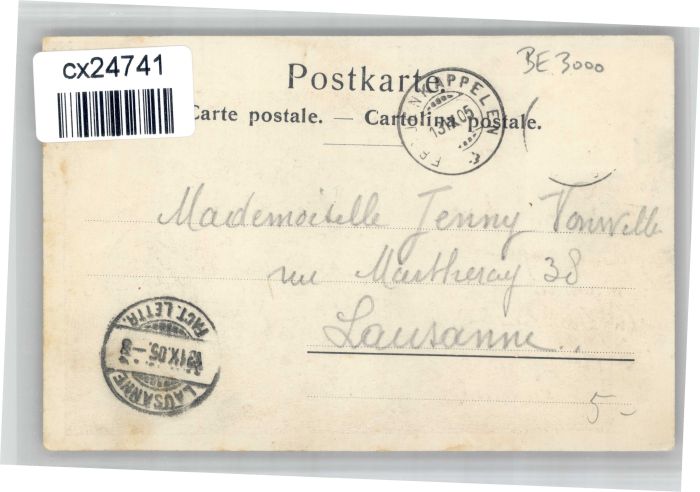 cx24741
BE 3000
Postkarte.
Carte postale. — Cartolina postale.
KAPPELEN
13.IX.05
Mademoiselle Jenny Vonwiller
rue Martheray 38
Lausanne.
LAUSANNE
IX.05.-8
FACT. LETTR.
5-